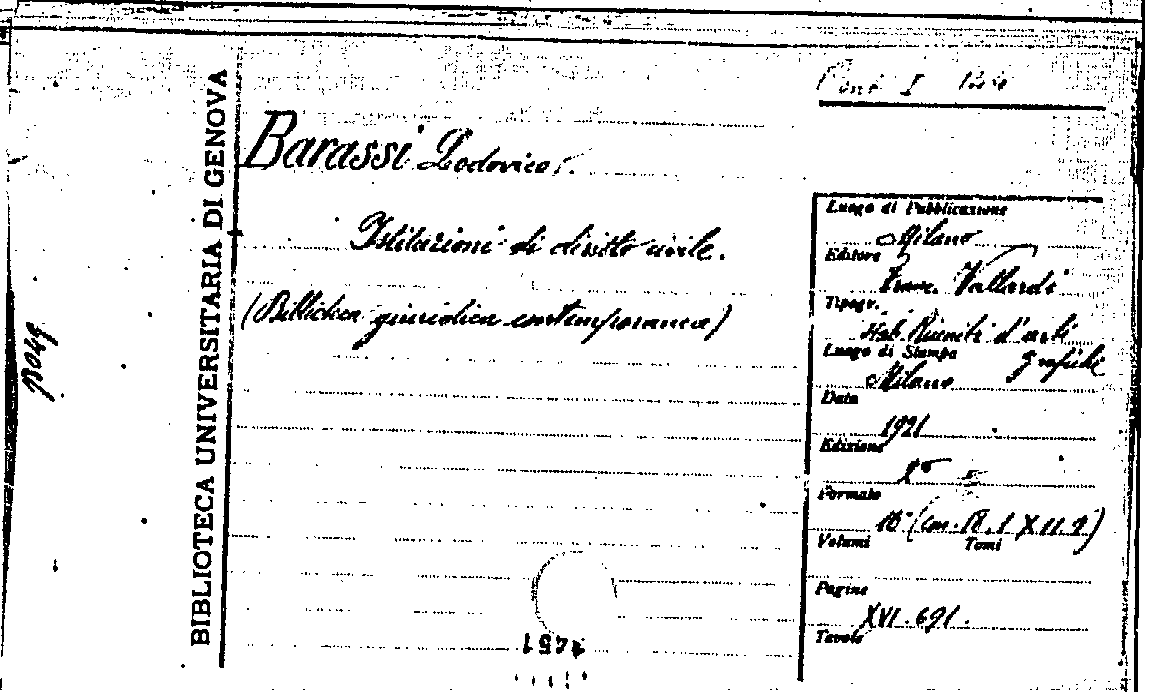 BIBLIOTECA UNIVERSITARIA DI GENOVA
Barassi Lodovico.
Istituzioni di diritto civile.
(Biblioteca giuridica contemporanea)
Luogo di Pubblicazione
Milano
Editore
Franc. Vallardi
Tipogr.
Stab. Riuniti d'arti
grafiche
Luogo di Stampa
Milano
Data
1921
Edizione
Formato
16° (cm.
Volumi Tomi
Pagine
XVI. 691.
Tavole